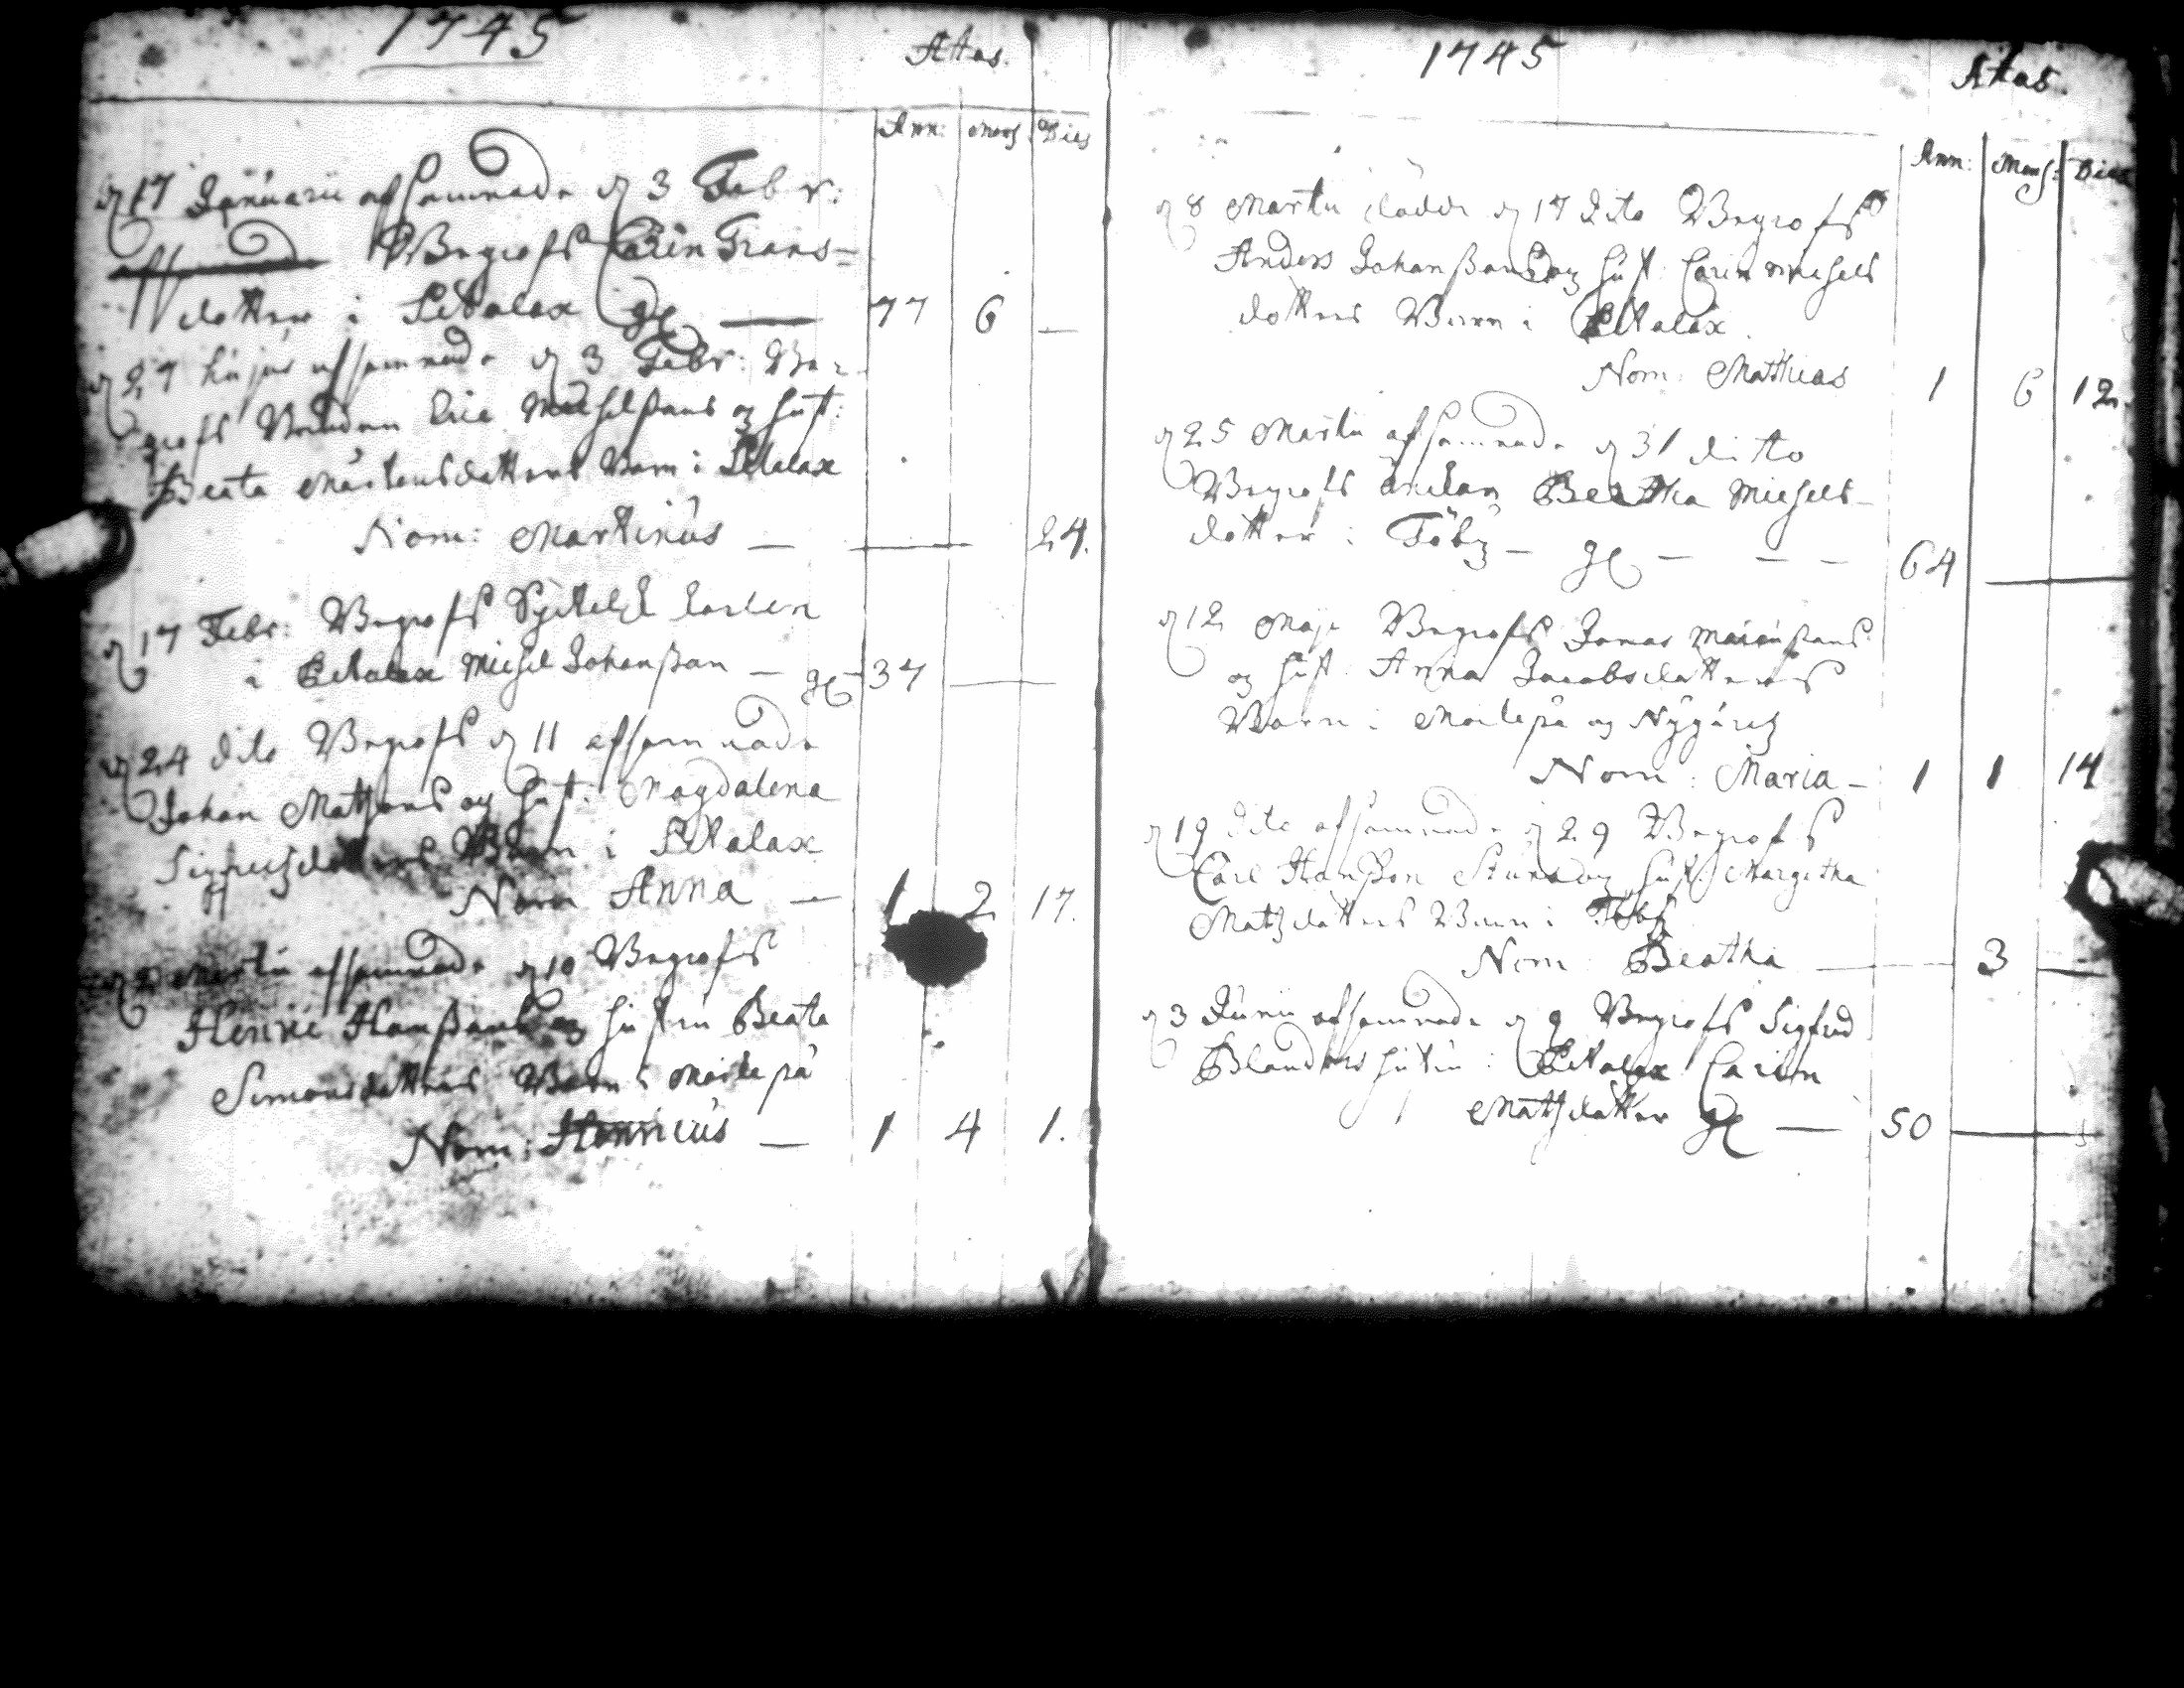 1745
Ætas.
Ann: Mens Dies
d 17 Januarii afsomnade d 3 Febr:
Begrofs Carin Frans=
dotter i Petalax gl — 77 6 —
d 27 hujus afsomnade d 3 Febr: Be=
grofs Bonden Eric Michelßons og Hust:
Beata Mårtensdotters Barn i Petalax
Nom: Martinus — — 24.
d 17 Febr: Begrofs
i Petalax Michel Johanßon — gl 37 —
d 24 dito Begrofs d 11 afsomnade
Johan Matsons og Hust: Magdalena
Sigfredsdotters Barn i Petalax
Nom Anna — 1 2 17.
d 2 Martii afsomnade d 10 Begrofs
Henric Hanßons og Hustru Beata
Simonsdotters Barn i Malepå
Nom: Henricus — 1 4 1.
1745
Ætas.
Ann: Mens: Dies
d 8 Martii dödde d 17 dito Begrofs
Anders Johanßons og Hust: Carin Michels
dotters Barn i Petalax
Nom: Matthias 1 6 12.
d 25 Martii afsomnade d 31 ditto
Begrofs Enkan Beatha Michels-
dotter i Töby — gl — — — 64 —
d 12 Maji Begrofs Jonas
og Hust: Anna Jacobsdotters
Barn i Malepå og Nygård
Nom: Maria — 1 1 14
d 19 dito afsomnade d 29 Begrofs
Carl Hanßon og Hust: Margetha
Matsdotters Barn i Töby
Nom: Beatha — 3 —
d 3 Junii afsomnade d 9 Begrofs Sigfred
Blanders Hustru i Petalax Carin
Matsdotter gl — 50 —